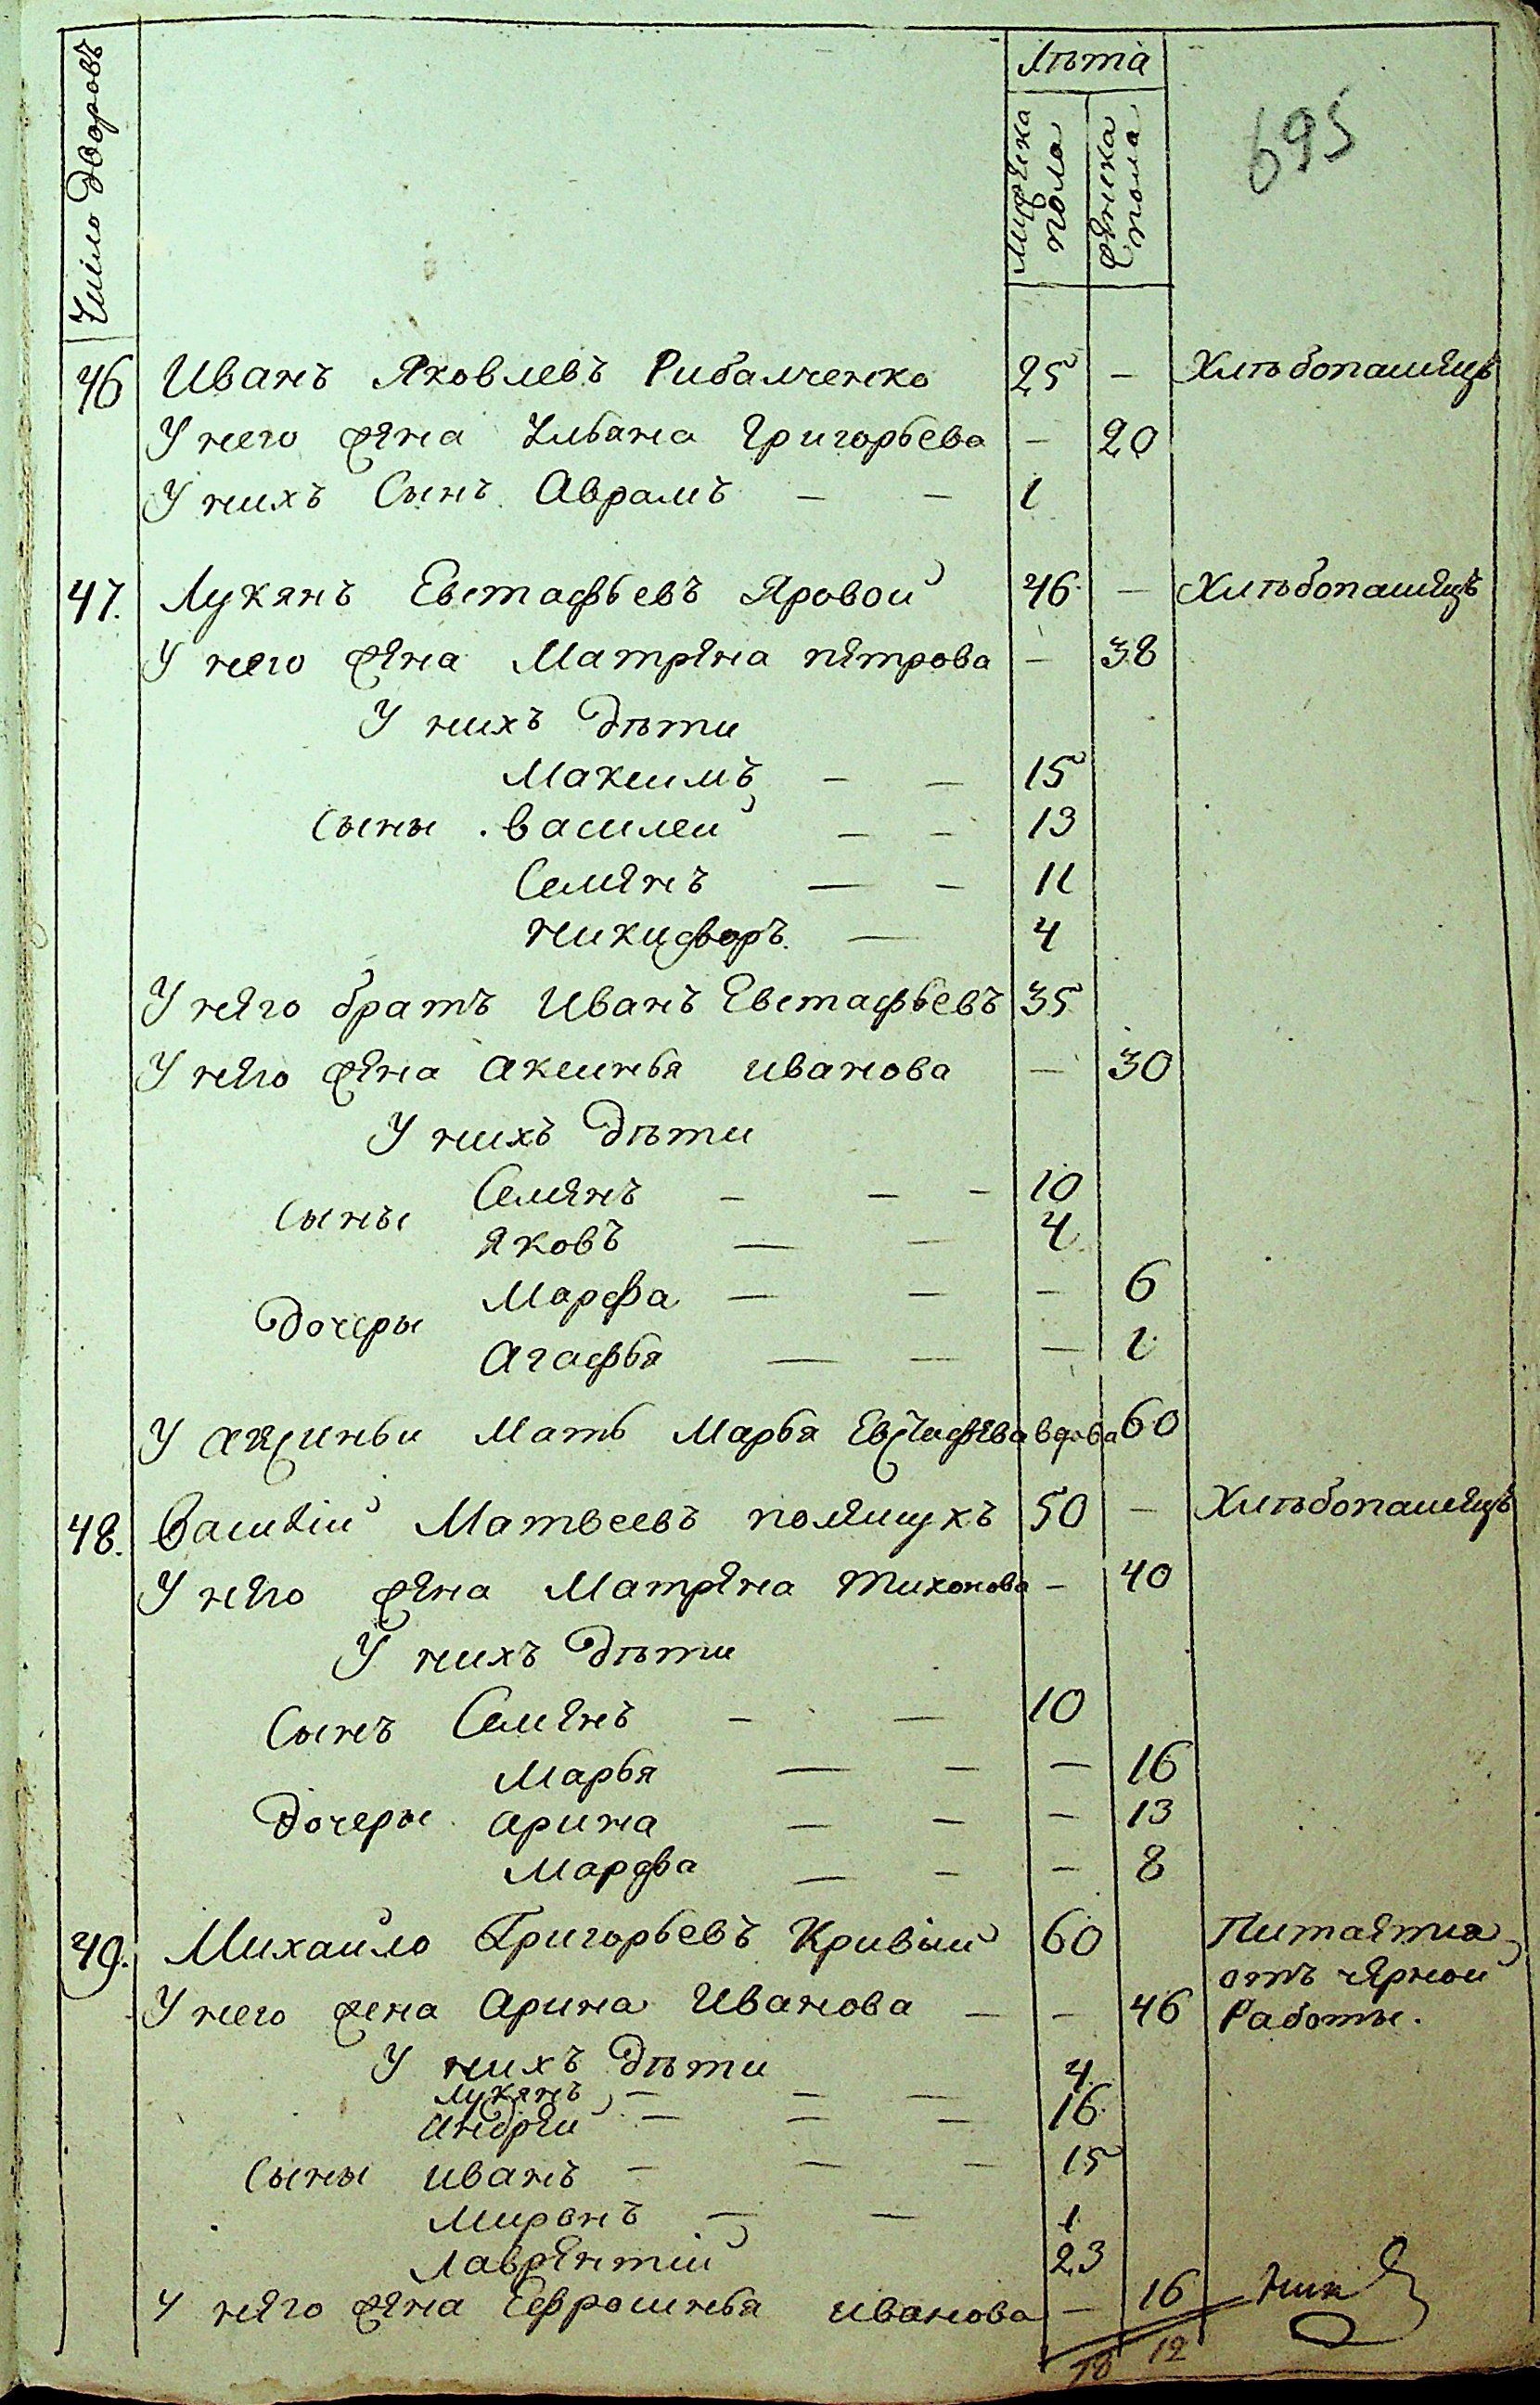 Число дворовъ
Лѣта
Мужеска пола
Женска пола
695
46 Иванъ Яковлевъ Рибалченко 25 — Хлѣбопашецъ
У него жена Ульяна Григорьева — 20
У нихъ Сынъ Аврамъ — — 1
47. Лукянъ Евстафьевъ Яровой 46 — Хлѣбопашецъ
У него жена Матрена петрова — 38
У нихъ дѣти
Максимъ — — 15
Сыны Василей — — 13
Семенъ — — 11
Никифоръ — 4
У него братъ Иванъ Евстафьевъ 35
У него жена Аксинья иванова — 30
У нихъ дѣти
Сыны Семенъ — — — 10
Яковъ — — 4
Дочеры Марфа — — — 6
Агафья — — — 1
У Мать Марья вдова 60
48. Василій Матвеевъ полещукъ 50 — Хлѣбопашецъ
У него жена Матрена Тихонова — 40
У нихъ дѣти
Сынъ Семенъ — — 10
Марья — — — 16
Дочеры арина — — — 13
Марфа — — — 8
49. Михайло Григорьевъ Кривый 60 Питается
отъ черной
У него жена Арина Иванова — — 46 Работы.
У нихъ дѣти
Лукянъ — — — 4
Андрей — — — 16
Сыны иванъ — — — 15
Миронъ — — 1
Лаврентій 23
У него жена Ефросинья иванова — 16
18 12